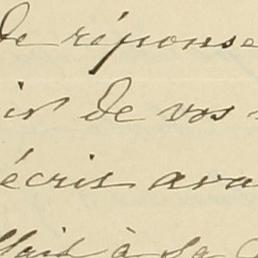 de réponse
ir de vos
écris ava
à sa